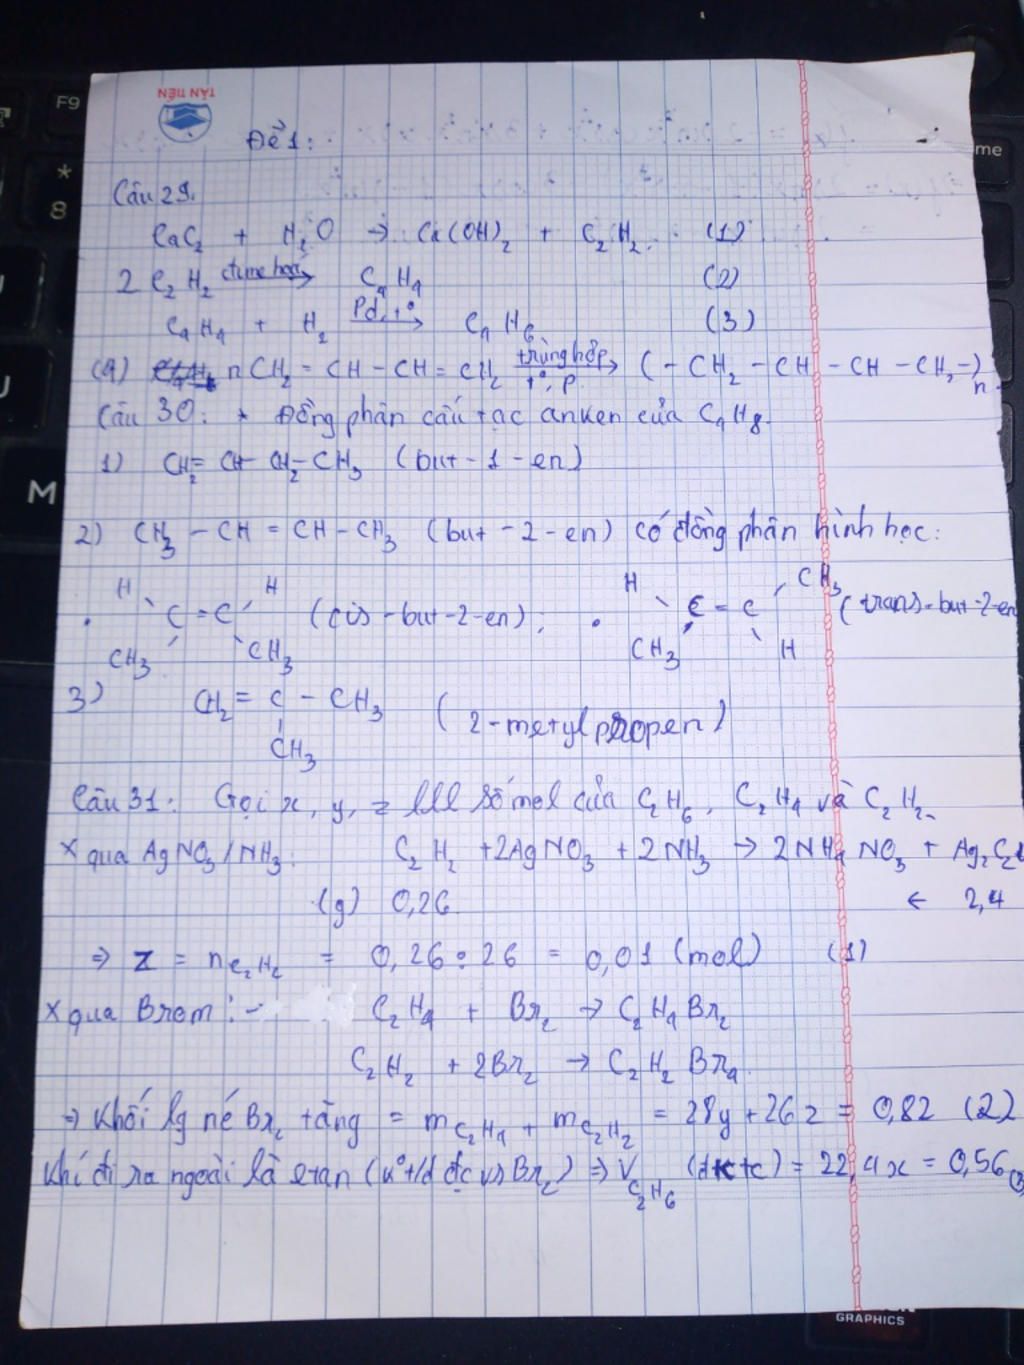 TÂN TIẾN
Đề 1:
Câu 29.
CaC₂ + H₂O → Ca(OH)₂ + C₂H₂. (1)
2 C₂H₂ đime hoá→ C₄H₄ (2)
C₄H₄ + H₂ Pd, t°→ C₄H₆ (3)
(4) nCH₂ = CH – CH = CH₂ trùng hợp→ t°, p. (– CH₂ – CH – CH – CH₂ –)n
Câu 30: * Đồng phân cấu tạo anken của C₄H₈.
1) CH₂ = CH – CH₂ – CH₃ (but-1-en)
2) CH₃ – CH = CH – CH₃ (but-2-en) có đồng phân hình học:
H H H CH₃
• C = C (cis-but-2-en); • C = C (trans-but-2-en
CH₃ CH₃ CH₃ H
3) CH₂ = C – CH₃ (2-metylpropen)
CH₃
Câu 31: Gọi x, y, z lll số mol của C₂H₆, C₂H₄ và C₂H₂.
x qua AgNO₃/NH₃: C₂H₂ + 2AgNO₃ + 2NH₃ → 2NH₄NO₃ + Ag₂C₂↓
(g) 0,26 ← 2,4
⇒ z = nC₂H₂ = 0,26 : 26 = 0,01 (mol) (1)
x qua Brom: C₂H₄ + Br₂ → C₂H₄Br₂
C₂H₂ + 2Br₂ → C₂H₂Br₄
⇒ Khối lg Br₂ tăng = mC₂H₄ + mC₂H₂ = 28y + 26z = 0,82 (2)
Khí đi ra ngoài là etan (k° t/d đc vs Br₂) ⇒ VC₂H₆ (đktc) = 22,4x = 0,56 (3
GRAPHICS
F9
*
8
U
U
M
me